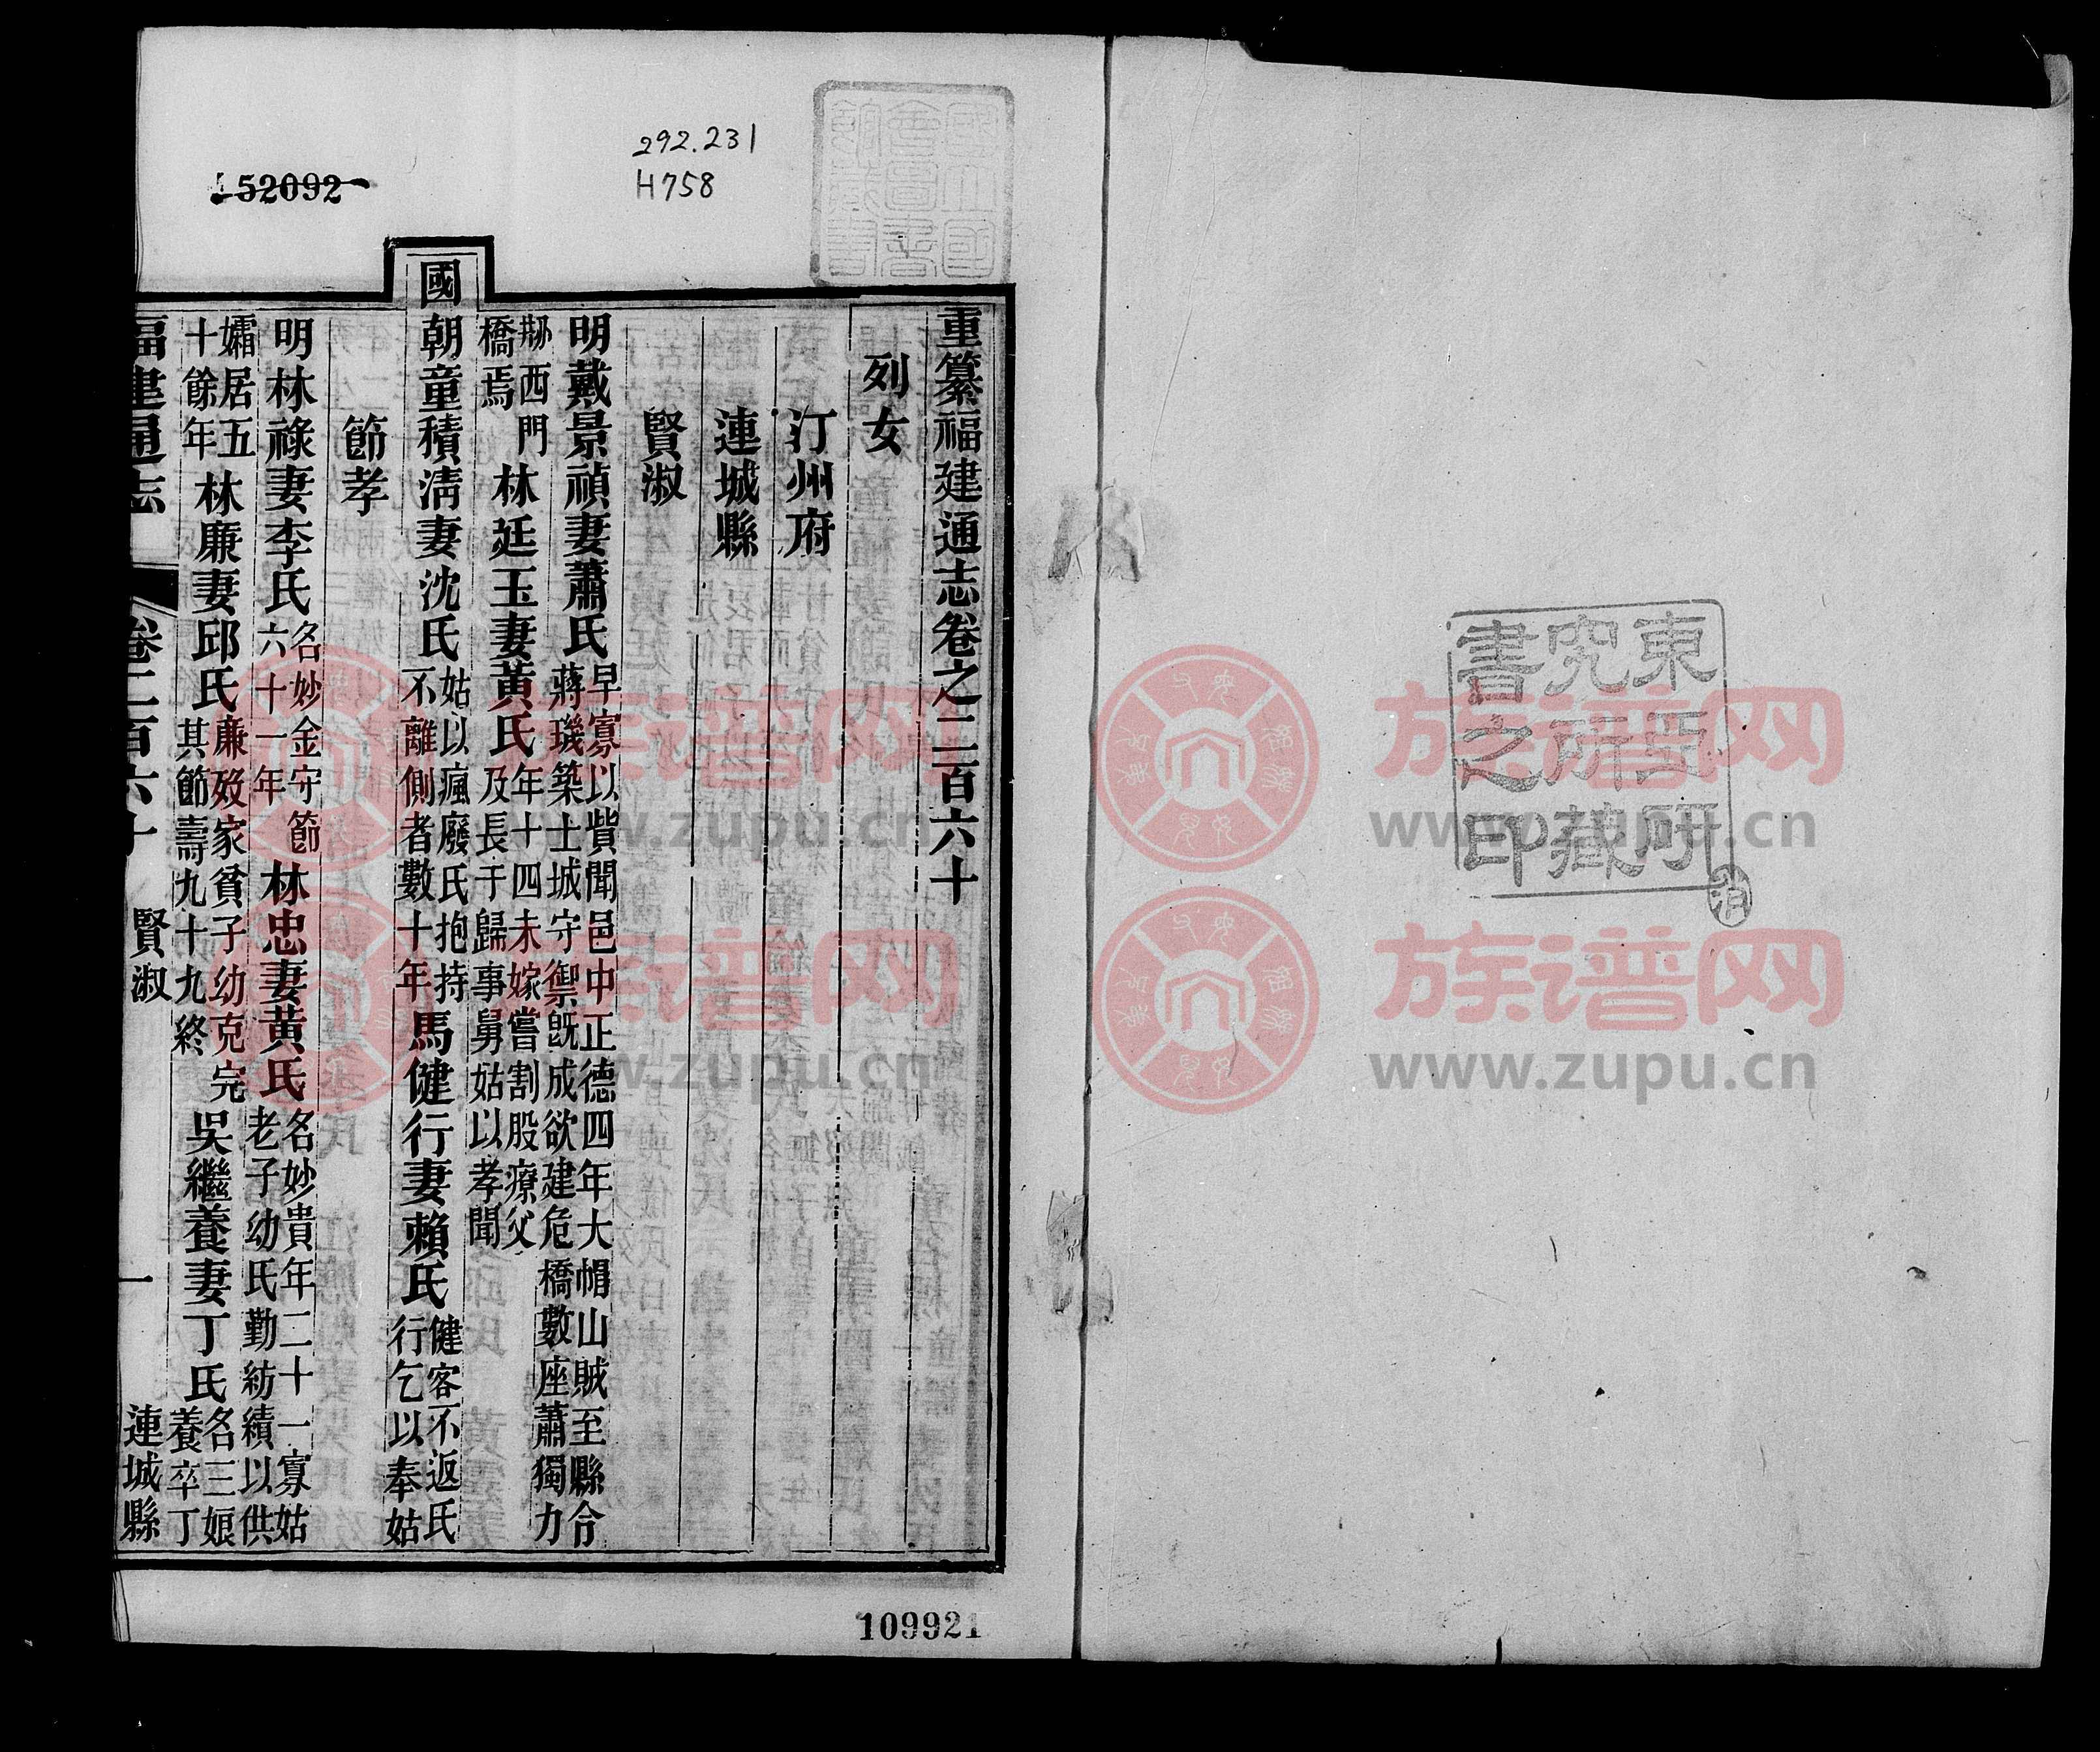 東亞研
究所藏
書之印
292.231
H758
152092
重纂福建通志卷之二百六十
列女
汀州府
連城縣
賢淑
明戴景禎妻蕭氏
早寡以貲聞邑中正德四年大帽山賊至縣令
蔣璣築土城守禦既成欲建危橋數座蕭獨力
刱西門
橋焉
林廷玉妻黃氏
年十四未嫁嘗割股療父
及長于歸事舅姑以孝聞
國朝童積淸妻沈氏
姑以瘋廢氏抱持
不離側者數十年
馬健行妻賴氏
健客不返氏
行乞以奉姑
節孝
明林祿妻李氏
名妙金守節
六十一年
林忠妻黃氏
名妙貴年二十一寡姑
老子幼氏勤紡績以供
孀居五
十餘年
林廉妻邱氏
廉歿家貧子幼克完
其節壽九十九終
吳繼養妻丁氏
名三娘
養卒丁
福建通志
卷二百六十
賢淑
一
連城縣
109921
族谱网
www.zupu.cn
族谱网
www.zupu.cn
族谱网
www.zupu.cn
族谱网
www.zupu.cn